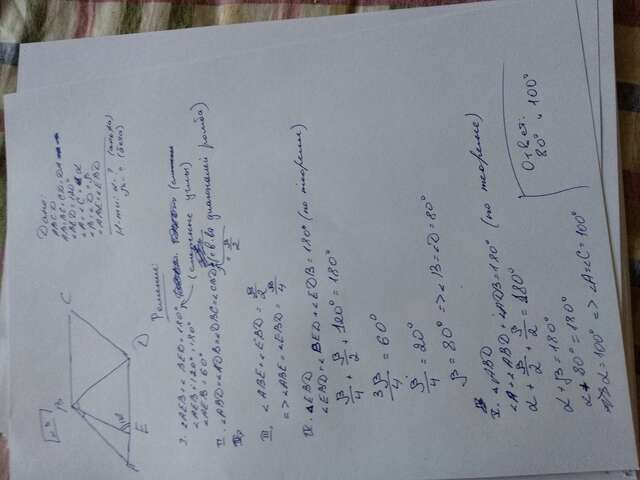 B
C
A
E
D
Дано:
ABCD
AB=BC=CD=DA
∠BED=120°
∠A=∠C=α
∠B=∠D=β
∠ABE=∠EBD
α-? 
β-? 
Решение
I. ∠AEB+∠BED=180° (смежные углы)
∠AEB+120°=180°
∠AEB=60°
II. ∠ABD=∠ADB=∠DBC=∠CBD (св-ва диагоналей ромба)
= β/2
III. ∠ABE+∠EBD = β/2
=> ∠ABE=∠EBD = β/4
IV. ΔEBD
∠EBD+∠BED+∠EDB=180° (по теореме)
β/4 + β/2 + 120° = 180°
3β/4 = 60°
β/4 = 20°
β = 80° => ∠B=∠D=80°
V. ΔABD
∠A+∠ABD+∠ADB=180° (по теореме)
α + β/2 + β/2 = 180°
α+β=180°
α+80°=180°
=> α=100° => ∠A=∠C=100°
Ответ:
80° и 100°